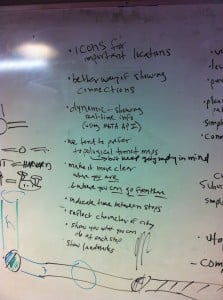 • icons for
important locations
• better way of showing
connections
• dynamic - showing
real-time info
(using MBTA API)
• we tend to prefer
topological transit maps
but keep geography in mind
• make it more clear
where you are
& where you can go from there
• indicate time between stops
• reflect character of city
• show you what you can
do at each stop
show landmarks
= HARVARD